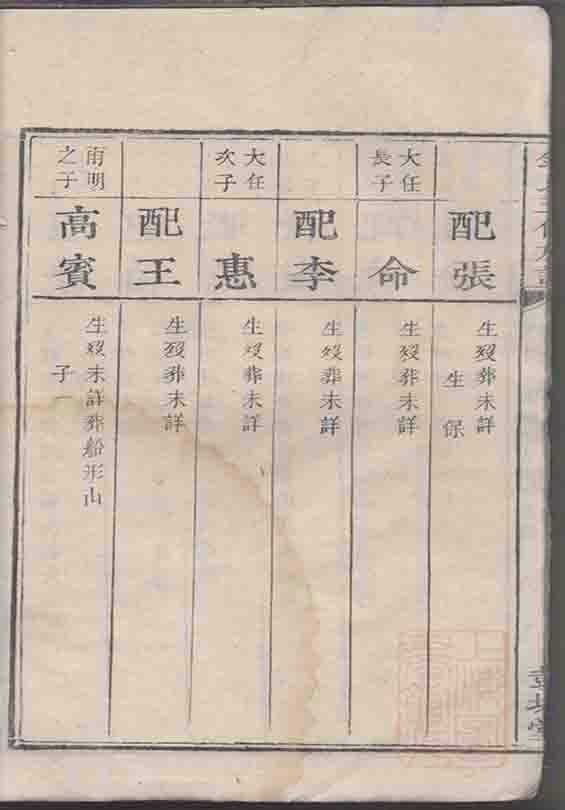 配張
生歿葬未詳
生保
大任
長子
命
生歿葬未詳
配李
生歿葬未詳
大任
次子
惠
生歿葬未詳
配王
生歿葬未詳
雨明
之子
高賓
生歿未詳葬船形山
子一